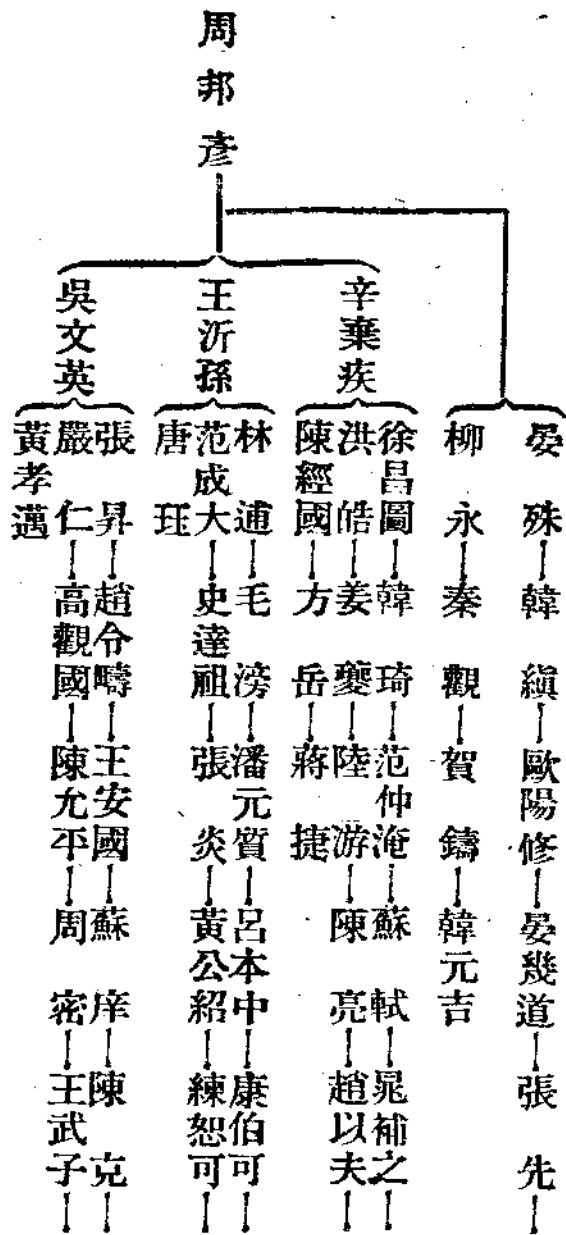 周邦彥
晏殊—韓縝—歐陽修—晏幾道—張先—
柳永—秦觀—賀鑄—韓元吉
辛棄疾
徐昌圖—韓琦—范仲淹—蘇軾—晁補之—
洪皓—姜夔—陸游—陳亮—趙以夫—
陳經國—方岳—蔣捷
王沂孫
林逋—毛滂—潘元質—呂本中—康伯可—
范成大—史達祖—張炎—黃公紹—練恕可—
唐珏
吳文英
張昇—趙令疇—王安國—蘇庠—陳克—
嚴仁—高觀國—陳允平—周密—王武子—
黃孝邁